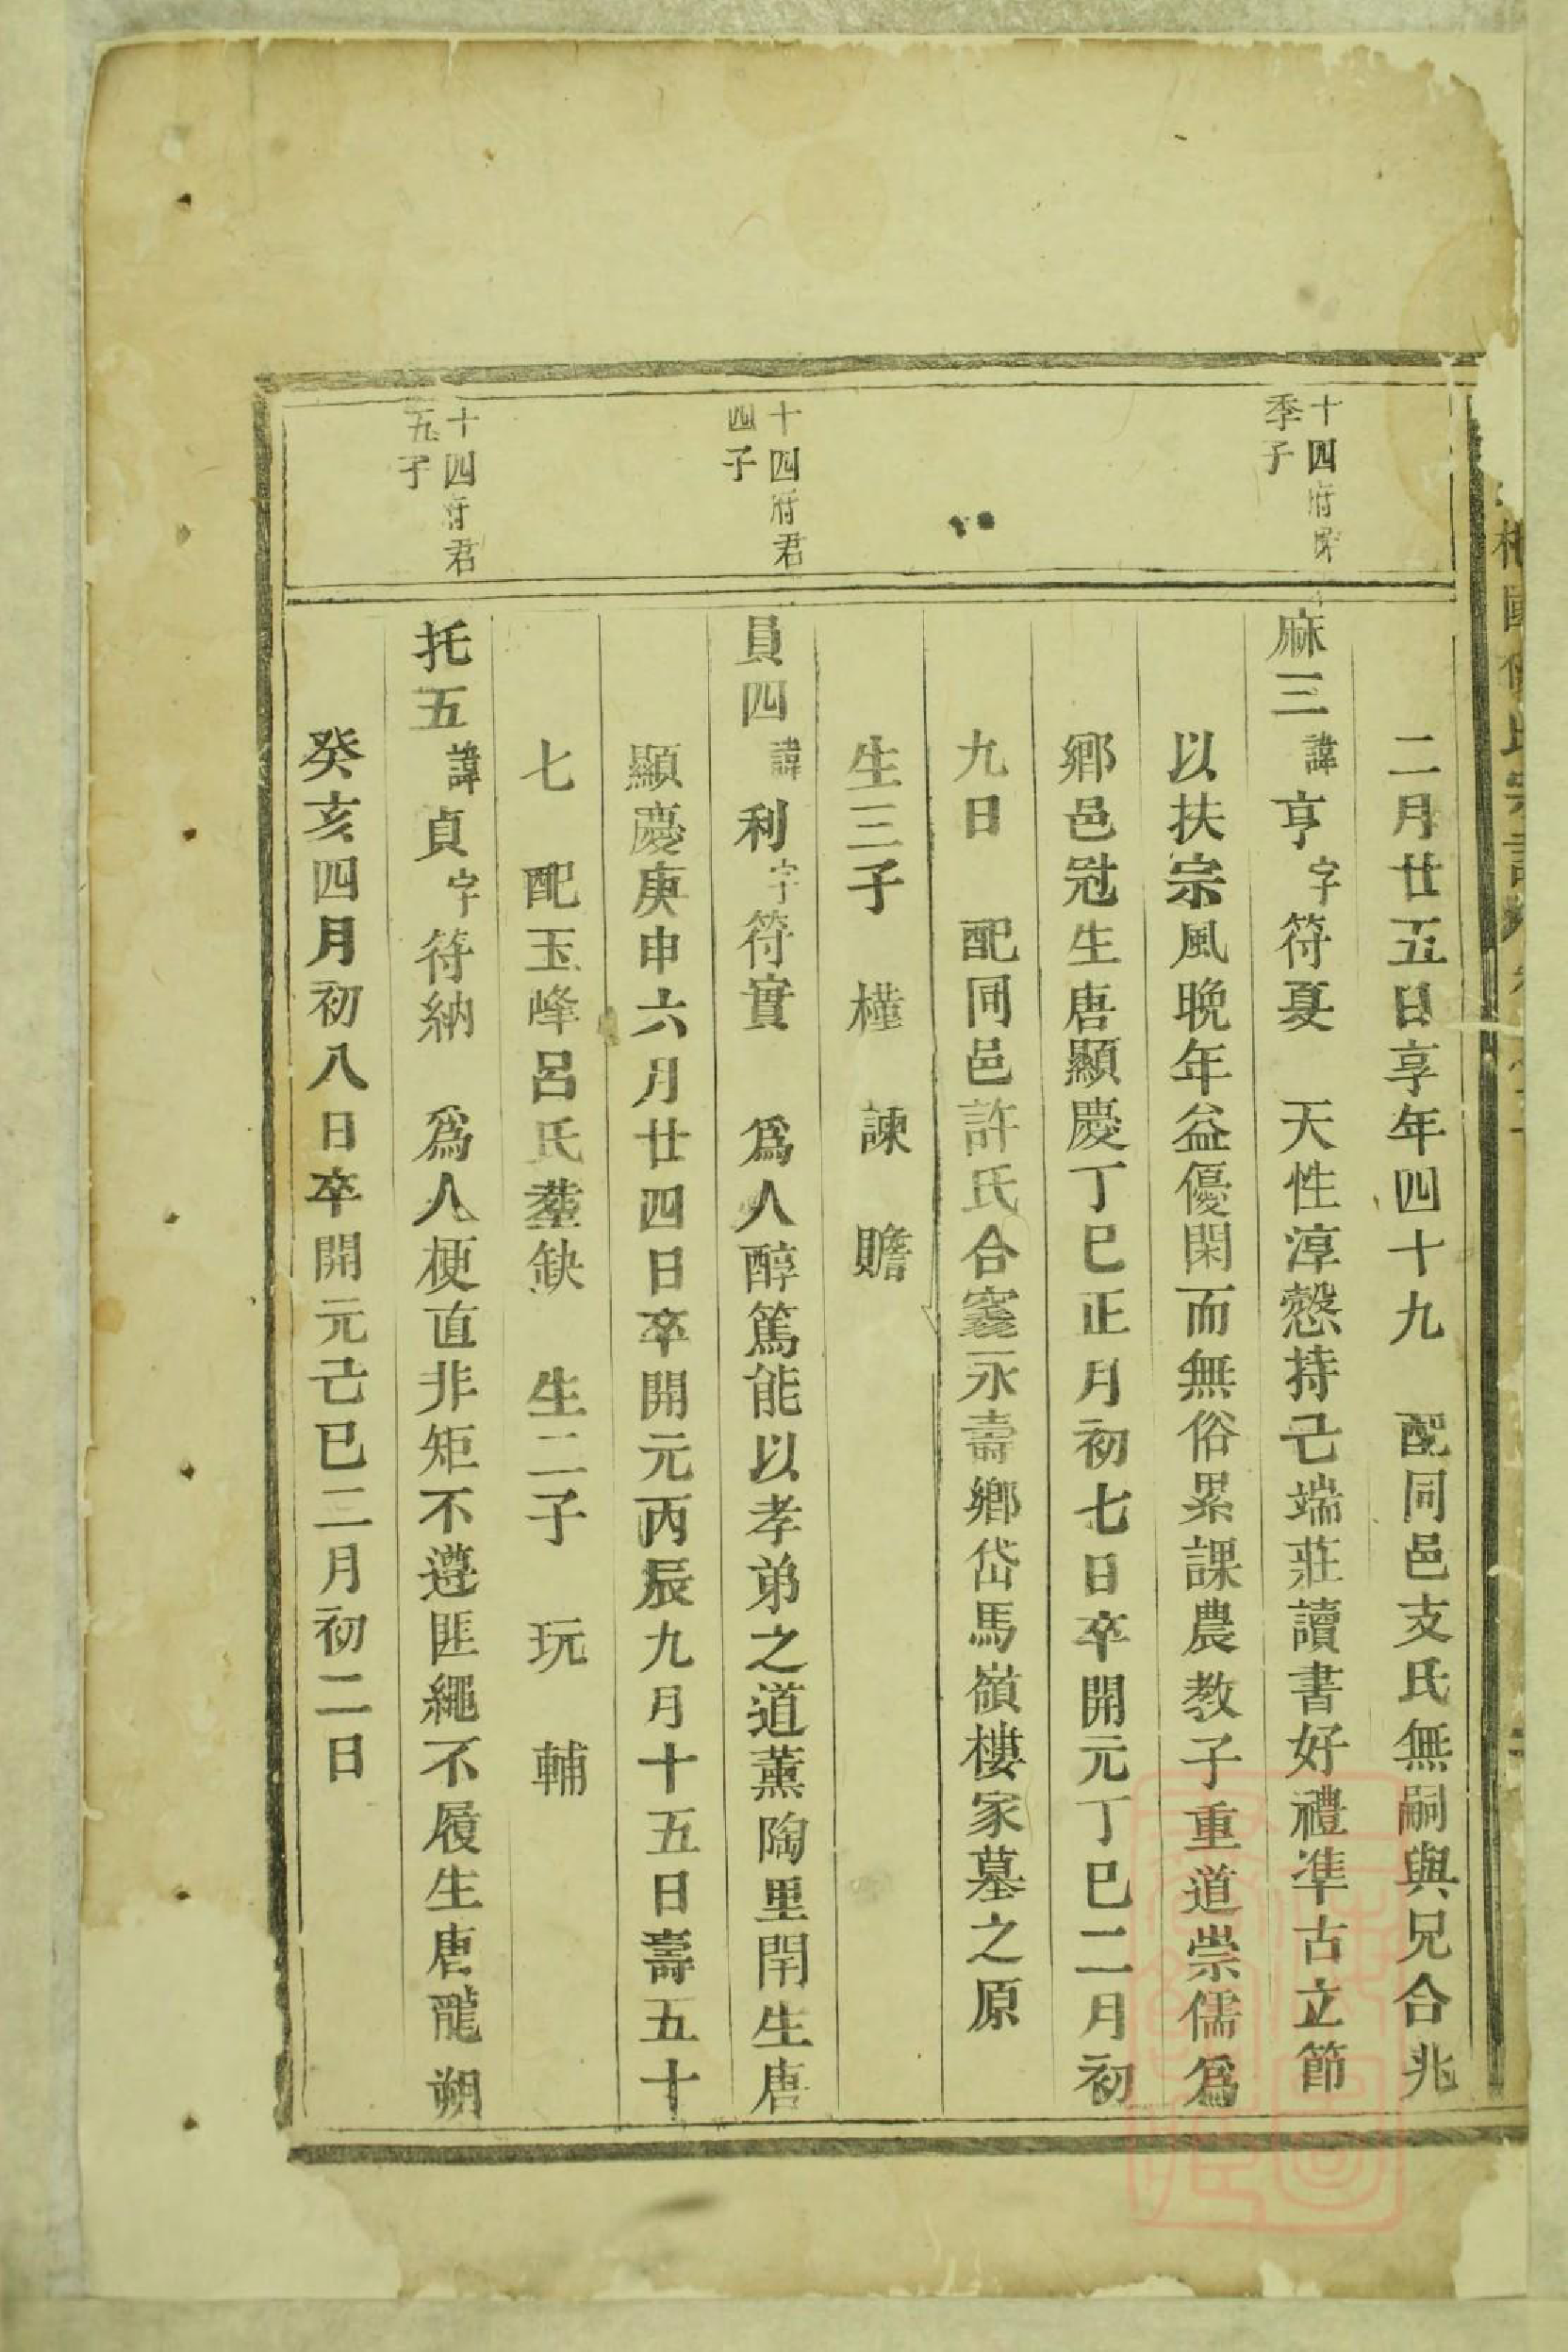 二月廿五日享年四十九　配同邑支氏無嗣與兄合兆
十四府君
季子
麻三諱亨字符夏　天性淳愨持己端莊讀書好禮準古立節
以扶宗風晚年益優閑而無俗累課農教子重道崇儒為
鄉邑冠生唐顯慶丁巳正月初七日卒開元丁巳二月初
九日　配同邑許氏合窆永壽鄉岱馬嶺樓家墓之原
生三子　槿　諫　贍
十四府君
四子
員四諱利字符實　為人醇篤能以孝弟之道薰陶里閈生唐
顯慶庚申六月廿四日卒開元丙辰九月十五日壽五十
七　配玉峰呂氏塟缺　生二子　玩　輔
十四府君
五子
托五諱貞字符納　為人梗直非矩不遵匪繩不履生唐龍朔
癸亥四月初八日卒開元己巳二月初二日